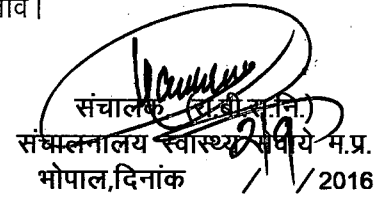 संचालक (रा.बी.स.नि.)
संचालनालय स्वास्थ्य सेवाये म.प्र.
भोपाल,दिनांक / / 2016
2/9